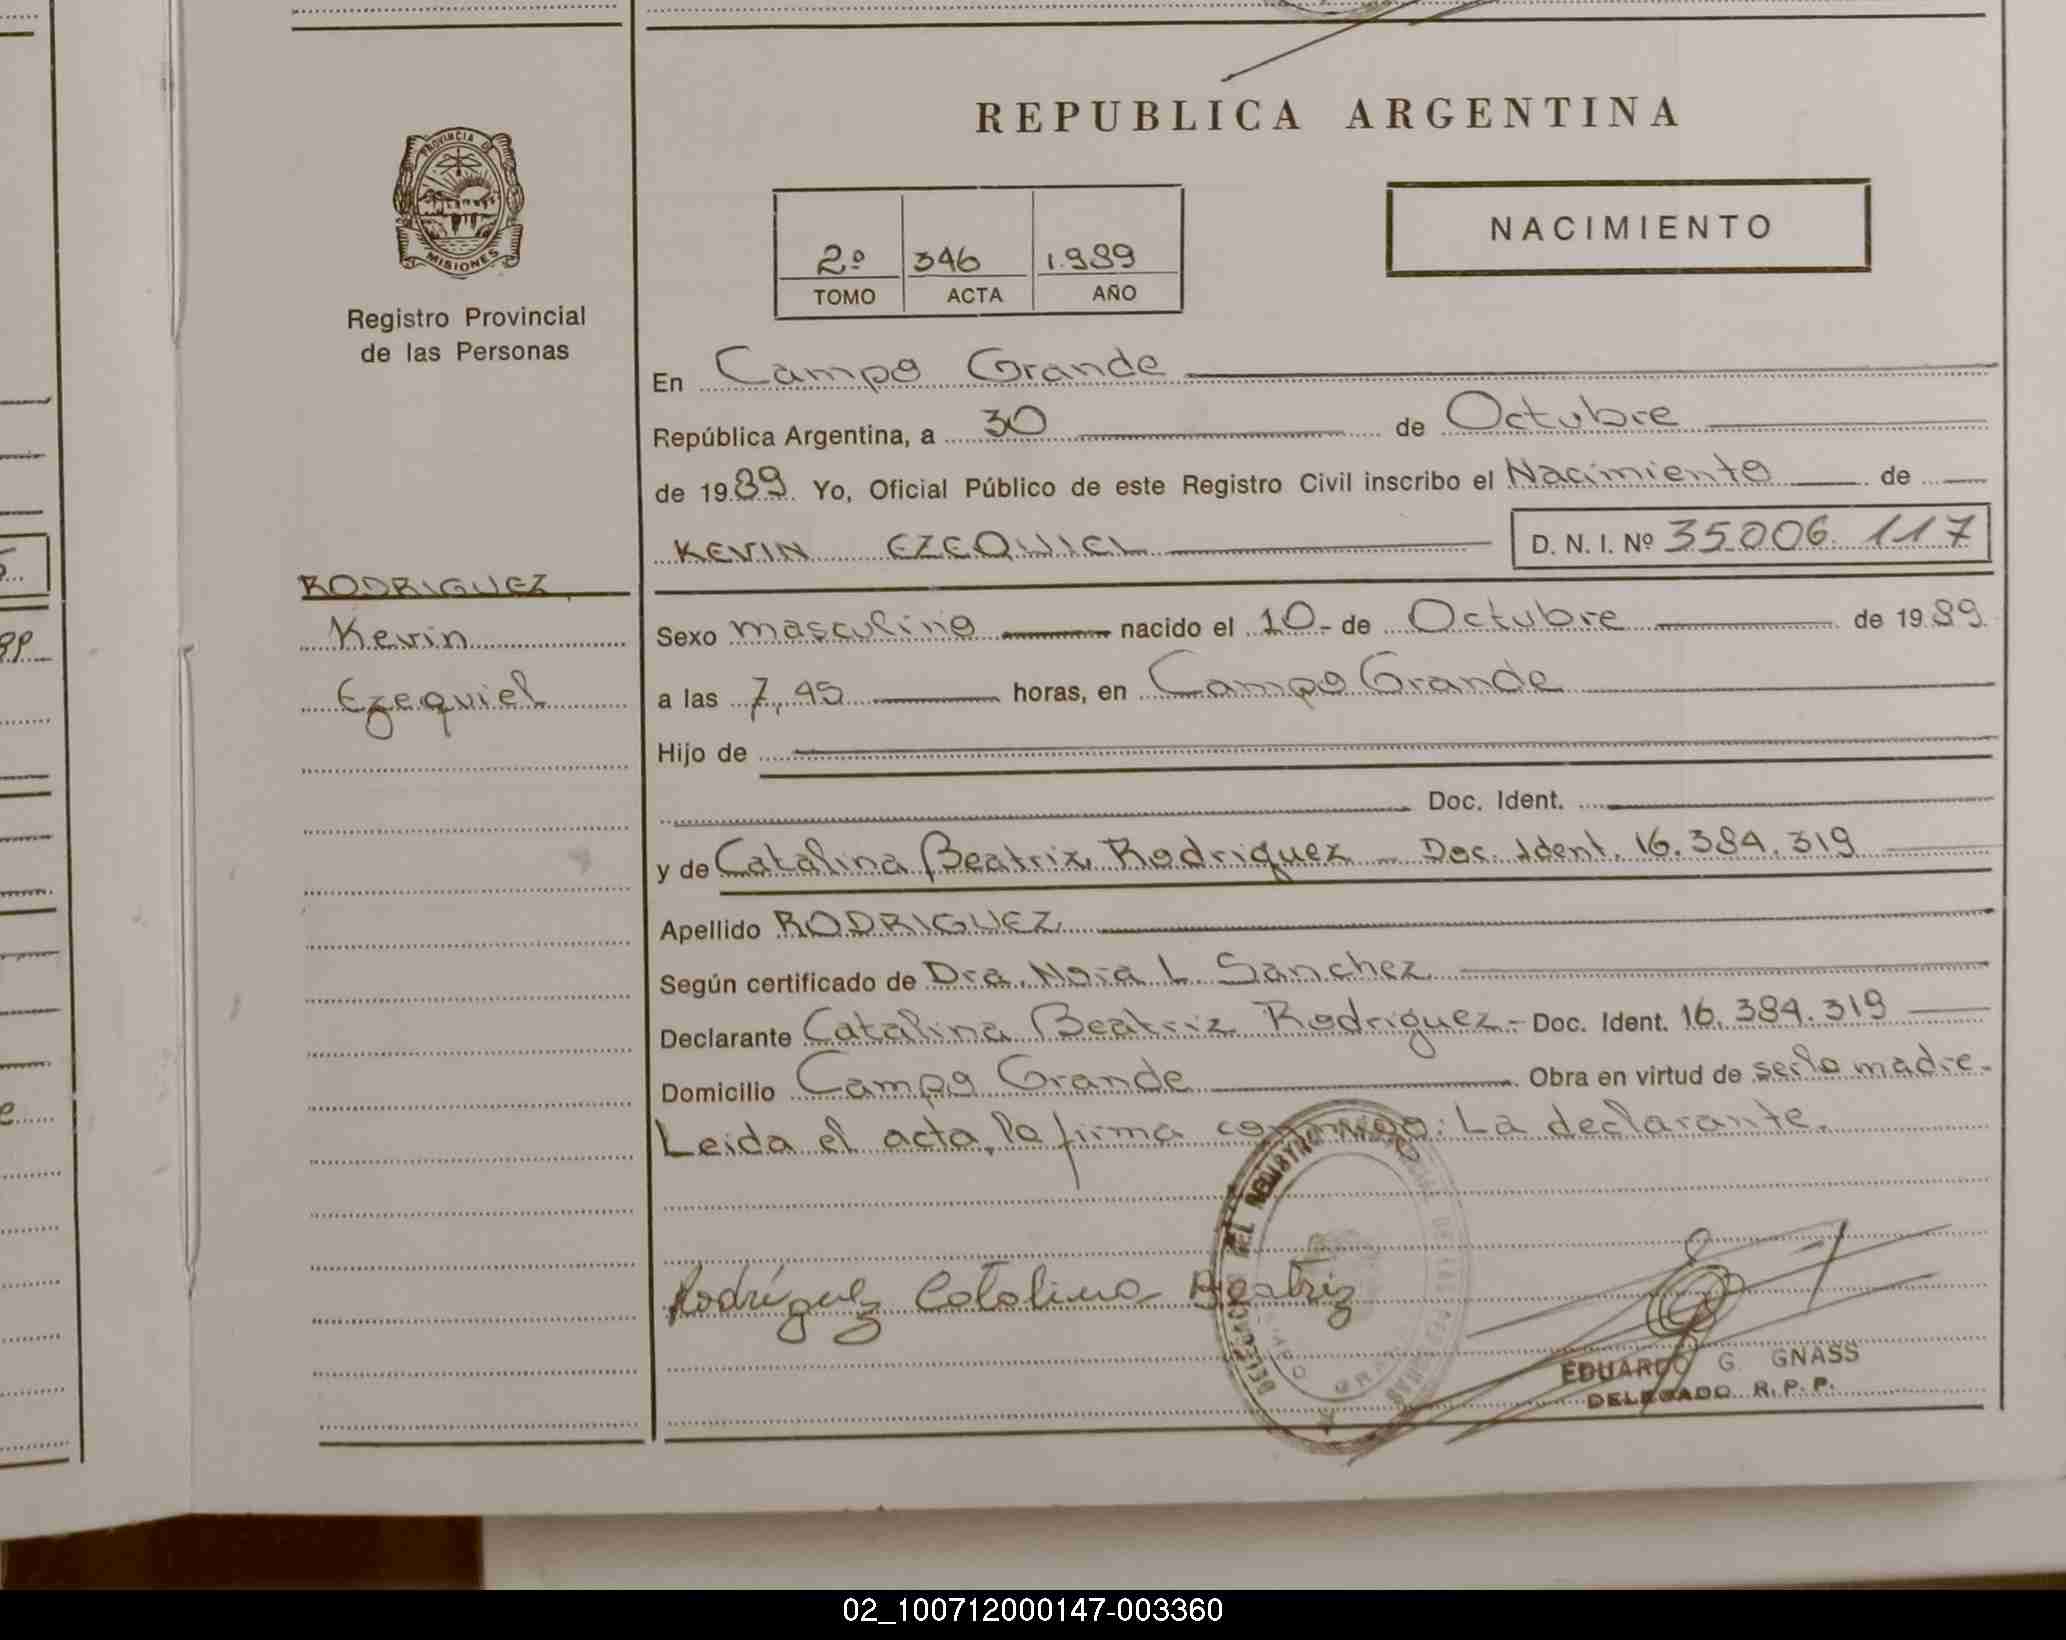 REPUBLICA ARGENTINA
PROVINCIA DE
MISIONES
Registro Provincial
de las Personas
NACIMIENTO
2º 346 1.989
TOMO ACTA AÑO
En Campo Grande
República Argentina, a 30 de Octubre
de 1989. Yo, Oficial Público de este Registro Civil inscribo el Nacimiento de
KEVIN EZEQUIEL D. N. I. Nº 35.006.117
RODRIGUEZ
Kevin
Ezequiel
Sexo masculino nacido el 10 de Octubre de 1989.
a las 7,45 horas, en Campo Grande
Hijo de
Doc. Ident.
y de Catalina Beatriz Rodriguez - Doc. Ident. 16.384.319
Apellido RODRIGUEZ
Según certificado de Dra. Nora L. Sanchez
Declarante Catalina Beatriz Rodriguez - Doc. Ident. 16.384.319
Domicilio Campo Grande Obra en virtud de serlo madre.
Leida el acta, la firma conmigo: La declarante.
Rodríguez Catalina Beatriz
DELEGACION DEL REGISTRO
EDUARDO G. GNASS
DELEGADO R. P. P.
02_100712000147-003360